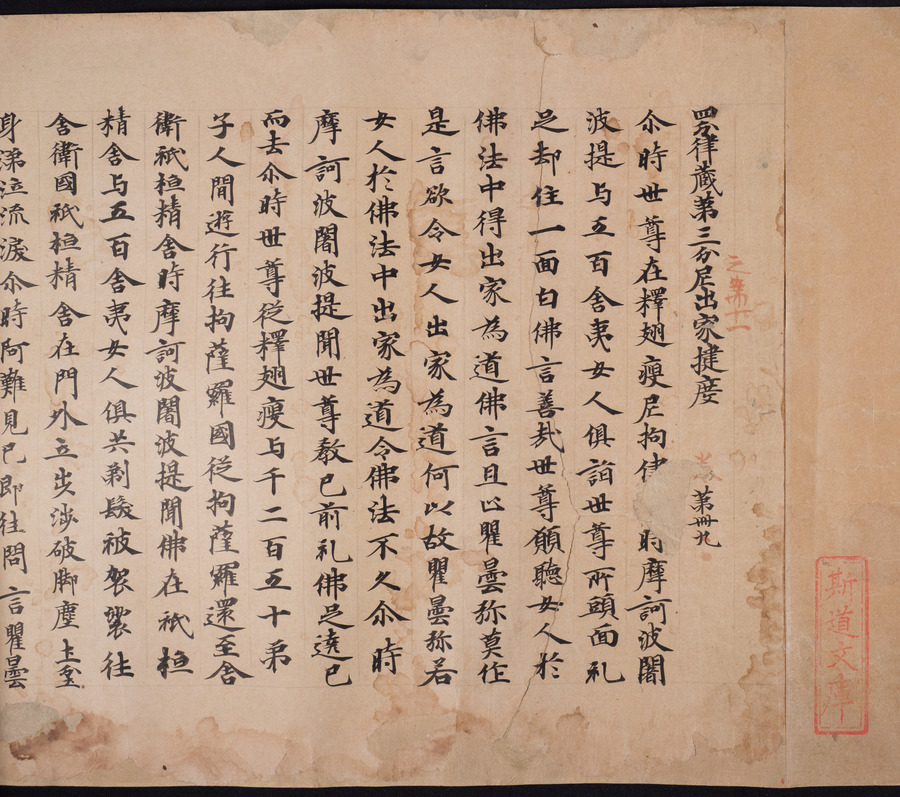 斯道文庫
四分律藏第三分尼出家揵度 第卌九
之第十一
尒時世尊在釋翅瘦尼拘律 時摩訶波闍
波提与五百舍夷女人俱詣世尊所頭面礼
足却住一面白佛言善哉世尊願聽女人於
佛法中得出家為道佛言且止瞿曇弥莫作
是言欲令女人出家為道何以故瞿曇弥若
女人於佛法中出家為道令佛法不久尒時
摩訶波闍波提聞世尊教已前礼佛足遶已
而去尒時世尊從釋翅瘦与千二百五十弟
子人間遊行往拘薩羅國從拘薩羅還至舍
衛祇桓精舍時摩訶波闍波提聞佛在祇桓
精舍与五百舍夷女人俱共剃髮被袈裟往
舍衛國祇桓精舍在門外立步涉破脚塵土坌
身涕泣流淚尒時阿難見已即往問言瞿曇